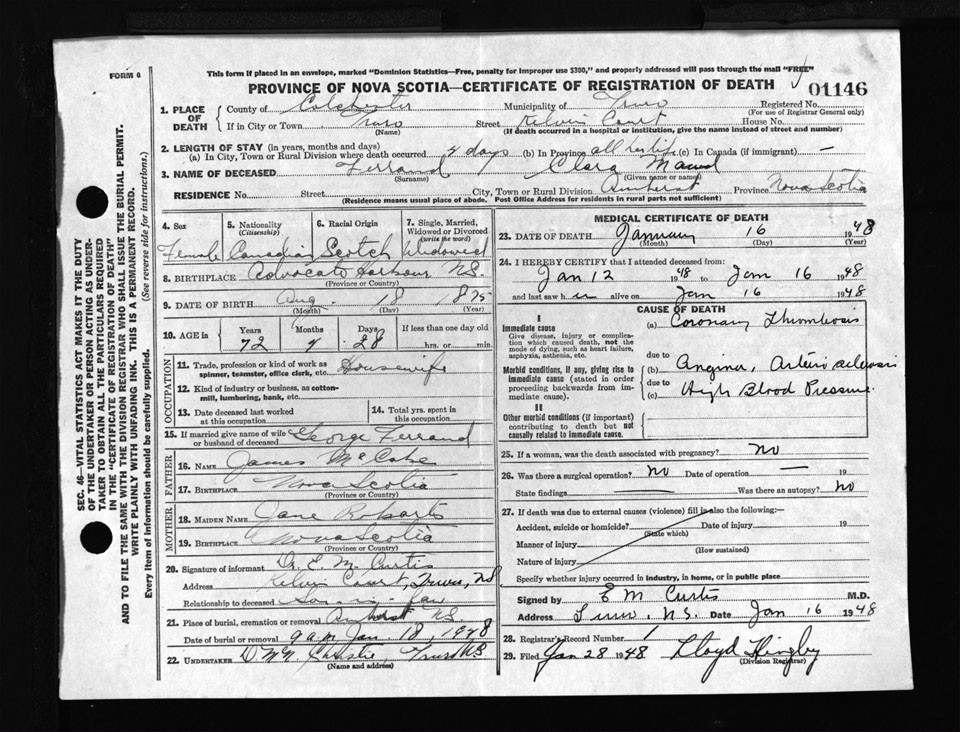 FORM 6
This form if placed in an envelope, marked "Dominion Statistics—Free, penalty for improper use $300," and properly addressed will pass through the mail "FREE"
PROVINCE OF NOVA SCOTIA—CERTIFICATE OF REGISTRATION OF DEATH
01146
1. PLACE OF DEATH
County of Colchester Municipality of Truro Registered No.
(For use of Registrar General only)
If in City or Town Truro Street Kelvin Court House No.
(Name) (If death occurred in a hospital or institution, give the name instead of street and number)
2. LENGTH OF STAY (in years, months and days)
(a) In City, Town or Rural Division where death occurred days (b) In Province all her life (c) In Canada (if immigrant) —
3. NAME OF DECEASED Ferrand Clara Maud
(Surname) (Given name or names)
RESIDENCE No. Street City, Town or Rural Division Amherst Province Nova Scotia
(Residence means usual place of abode. Post Office Address for residents in rural parts not sufficient)
SEC. 46—VITAL STATISTICS ACT MAKES IT THE DUTY
OF THE UNDERTAKER OR PERSON ACTING AS UNDER-
TAKER TO OBTAIN ALL THE PARTICULARS REQUIRED
IN THE "CERTIFICATE OF REGISTRATION OF DEATH"
AND TO FILE THE SAME WITH THE DIVISION REGISTRAR WHO SHALL ISSUE THE BURIAL PERMIT.
WRITE PLAINLY WITH UNFADING INK. THIS IS A PERMANENT RECORD.
Every item of information should be carefully supplied. (See reverse side for instructions.)
4. Sex
Female
5. Nationality
(Citizenship)
Canadian
6. Racial Origin
Scotch
7. Single, Married, Widowed or Divorced
(write the word)
Widowed
8. BIRTHPLACE Advocate Harbour N.S.
(Province or County)
9. DATE OF BIRTH Aug. 18 1875
(Month) (Day) (Year)
10. AGE in Years Months Days If less than one day old
72 4 28 hrs. or min.
OCCUPATION
11. Trade, profession or kind of work as Housewife
spinner, teamster, office clerk, etc.
12. Kind of industry or business, as cotton-
mill, lumbering, bank, etc.
13. Date deceased last worked
at this occupation
14. Total yrs. spent in
this occupation
15. If married give name of wife
or husband of deceased George Ferrand
FATHER
16. NAME James McCabe
17. BIRTHPLACE Nova Scotia
(Province or County)
MOTHER
18. MAIDEN NAME Jane Robarts
19. BIRTHPLACE Nova Scotia
(Province or County)
20. Signature of informant Dr. E. M. Curtis
Address Kelvin Court, Truro, NS
Relationship to deceased Son-in-law
21. Place of burial, cremation or removal Amherst N.S.
Date of burial or removal Jan. 18, 1948
22. UNDERTAKER Christie, Truro N.S
(Name and address)
MEDICAL CERTIFICATE OF DEATH
23. DATE OF DEATH January 16 1948
(Month) (Day) (Year)
24. I HEREBY CERTIFY that I attended deceased from:
Jan 12 1948 to Jan 16 1948
and last saw her alive on Jan 16 1948
CAUSE OF DEATH
I
Immediate cause
Give disease, injury or complication which caused death, not the mode of dying, such as heart failure, asphyxia, asthenia, etc.
(a) Coronary Thrombosis
due to
Morbid conditions, if any, giving rise to immediate cause (stated in order proceeding backwards from immediate cause).
(b) Angina, Arteriosclerosis
due to
(c) High Blood Pressure.
II
Other morbid conditions (if important) contributing to death but not causally related to immediate cause.
25. If a woman, was the death associated with pregnancy? no
26. Was there a surgical operation? no Date of operation — 19
State findings — Was there an autopsy? no
27. If death was due to external causes (violence) fill in also the following:—
Accident, suicide or homicide? Date of injury 19
(State which)
Manner of injury
(How sustained)
Nature of injury
Specify whether injury occurred in industry, in home, or in public place
Signed by E M Curtis M.D.
Address Truro, N.S. Date Jan 16 1948
28. Registrar's Record Number 1
29. Filed Jan 28 1948 Lloyd
(Division Registrar)